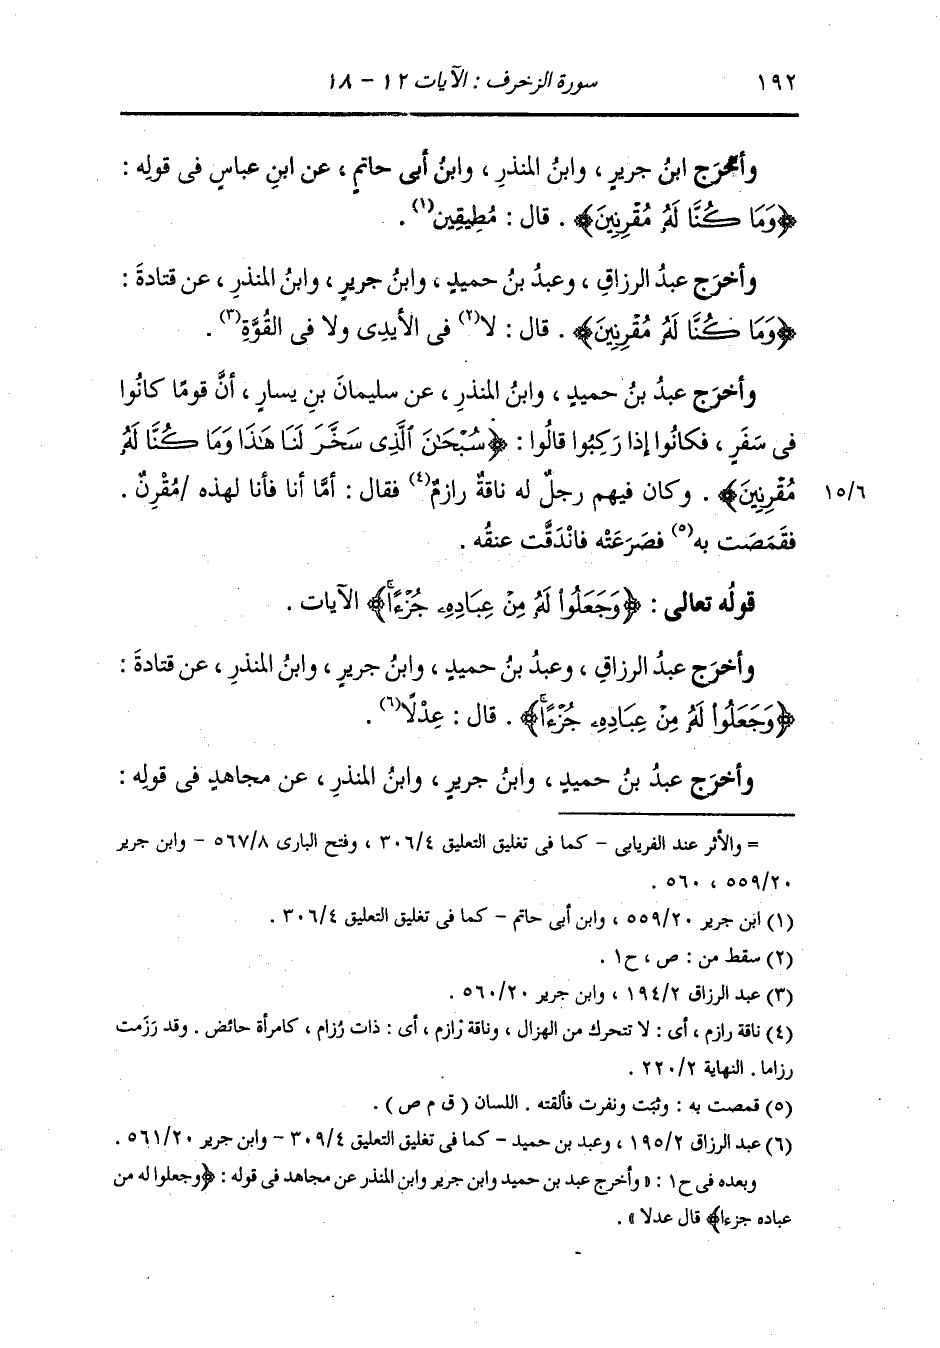 ١٩٢
سورة الزخرف : الآيات ١٢ - ١٨
وأخرَج ابنُ جريرٍ ، وابنُ المنذرِ ، وابنُ أبى حاتمٍ ، عن ابنِ عباسٍ فى قولِه :
﴿وَمَا كُنَّا لَهُ مُقْرِنِينَ﴾ . قال : مُطِيقِين(١) .
وأخرَج عبدُ الرزاقِ ، وعبدُ بنُ حميدٍ ، وابنُ جريرٍ ، وابنُ المنذرِ ، عن قتادةَ :
﴿وَمَا كُنَّا لَهُ مُقْرِنِينَ﴾ . قال : لا(٢) فى الأيدِى ولا فى القُوَّةِ(٣) .
وأخرَج عبدُ بنُ حميدٍ ، وابنُ المنذرِ ، عن سليمانَ بنِ يسارٍ ، أنَّ قومًا كانُوا
فى سَفَرٍ ، فكانُوا إذا رَكِبُوا قالُوا : ﴿سُبْحَٰنَ ٱلَّذِى سَخَّرَ لَنَا هَٰذَا وَمَا كُنَّا لَهُ
مُقْرِنِينَ﴾ . وكان فيهم رجلٌ له ناقةٌ رازمٌ(٤) فقال : أمَّا أنا فأنا لهذه /مُقْرِنٌ . ١٥/٦
فقَمَصَت به(٥) فصَرَعَتْه فانْدَقَّت عنقُه .
قولُه تعالى : ﴿وَجَعَلُوا۟ لَهُ مِنْ عِبَادِهِۦ جُزْءًا﴾ الآيات .
وأخرَج عبدُ الرزاقِ ، وعبدُ بنُ حميدٍ ، وابنُ جريرٍ ، وابنُ المنذرِ ، عن قتادةَ :
﴿وَجَعَلُوا۟ لَهُ مِنْ عِبَادِهِۦ جُزْءًا﴾ . قال : عِدْلًا(٦) .
وأخرَج عبدُ بنُ حميدٍ ، وابنُ جريرٍ ، وابنُ المنذرِ ، عن مجاهدٍ فى قولِه :
= والأثر عند الفريابى - كما فى تغليق التعليق ٣٠٦/٤ ، وفتح البارى ٥٦٧/٨ - وابن جرير
٥٥٩/٢٠ ، ٥٦٠ .
(١) ابن جرير ٥٥٩/٢٠ ، وابن أبى حاتم - كما فى تغليق التعليق ٣٠٦/٤ .
(٢) سقط من : ص ، ح١ .
(٣) عبد الرزاق ١٩٤/٢ ، وابن جرير ٥٦٠/٢٠ .
(٤) ناقة رازم ، أى : لا تتحرك من الهزال ، وناقة رازم ، أى : ذات رُزام ، كامرأة حائض . وقد رَزَمت
رزاما . النهاية ٢٢٠/٢ .
(٥) قمصت به : وثبت ونفرت فألقته . اللسان ( ق م ص ) .
(٦) عبد الرزاق ١٩٥/٢ ، وعبد بن حميد - كما فى تغليق التعليق ٣٠٩/٤ - وابن جرير ٥٦١/٢٠ .
وبعده فى ح١ : « وأخرج عبد بن حميد وابن جرير وابن المنذر عن مجاهد فى قوله : ﴿وجعلوا له من
عباده جزءا﴾ قال عدلا » .